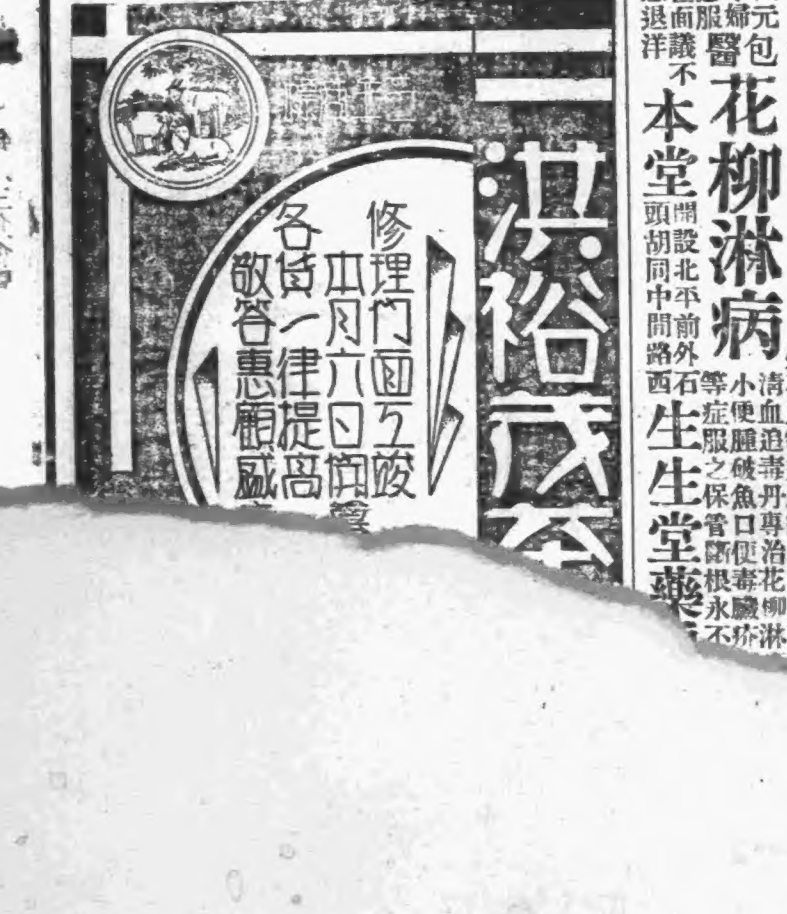 元包
婦
服醫
面議不
退洋
花柳淋病
清血追毒丹專治花柳淋
小便腫破魚口便毒臟疥
等症服之保管斷根永不
本堂
開設北平前外石
頭胡同中間路西
生生堂藥
洪裕茂茶
修理門面工竣
本月六日開
各貨一律提高
敬答惠顧盛